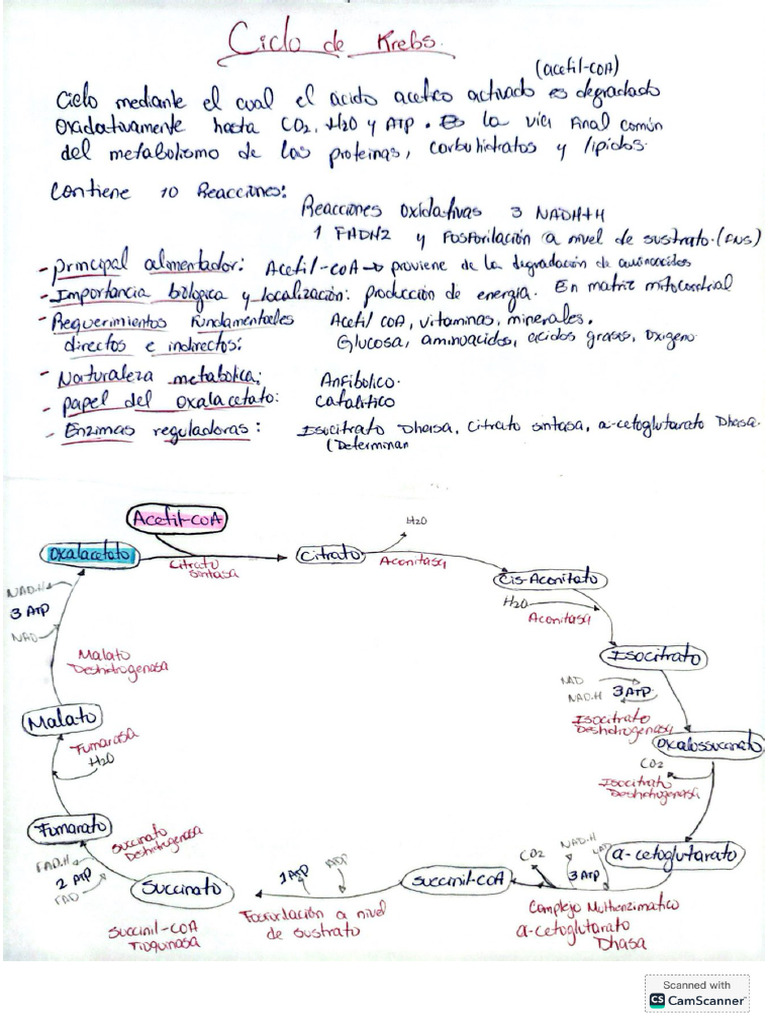 Ciclo de Krebs.
(acetil-coA)
Ciclo mediante el cual el ácido acetico activado es degradado
Oxidativamente hasta CO2, H2O y ATP. Es la vía final común
del metabolismo de las proteínas, carbohidratos y lípidos.
Contiene 10 Reacciones:
Reacciones oxidativas 3 NADH+H
1 FADH2 y Fosforilación a nivel de sustrato. (FNS)
- principal alimentador: Acetil-coA → proviene de la degradación de aminoácidos
- Importancia biológica y localización: producción de energía. En matriz mitocondrial
- Requerimientos fundamentales Acetil coA, vitaminas, minerales,
directos e indirectos: Glucosa, aminoacidos, acidos grasos, oxigeno
- Naturaleza metabolica: Anfibolico.
- papel del oxalacetato: catalitico
- Enzimas reguladoras: Isocitrato Dhasa, citrato sintasa, a-cetoglutarato Dhasa.
(Determinan
Acetil-coA
H2O
Oxalacetato
Citrato
Citrato
sintasa
Aconitasa
Cis-Aconitato
H2O
Aconitasa
NAD.H
3 ATP
NAD
Isocitrato
Malato
Deshidrogenasa
NAD
NAD.H 3 ATP
Isocitrato
Deshidrogenasa
Malato
Oxalossucinato
Fumarasa
H2O
CO2
Isocitrato
Deshidrogenasa
Fumarato
Succinato
Deshidrogenasa
FAD.H
2 ATP
FAD
Succinato
1 ATP
ADP
Succinil-coA
CO2
NAD.H
NAD
3 ATP
a-cetoglutarato
Fosforilación a nivel
de sustrato
Complejo Multienzimatico
a-cetoglutarato
Dhasa
Succinil-coA
Tioquinasa
Scanned with
CS CamScanner